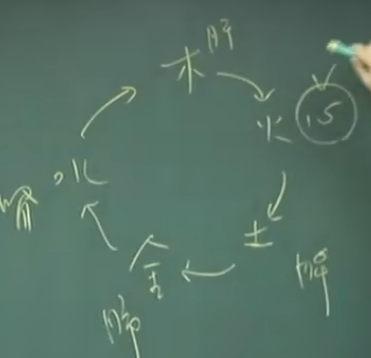 木 肝
火 心
土 脾
金 肺
水 肾